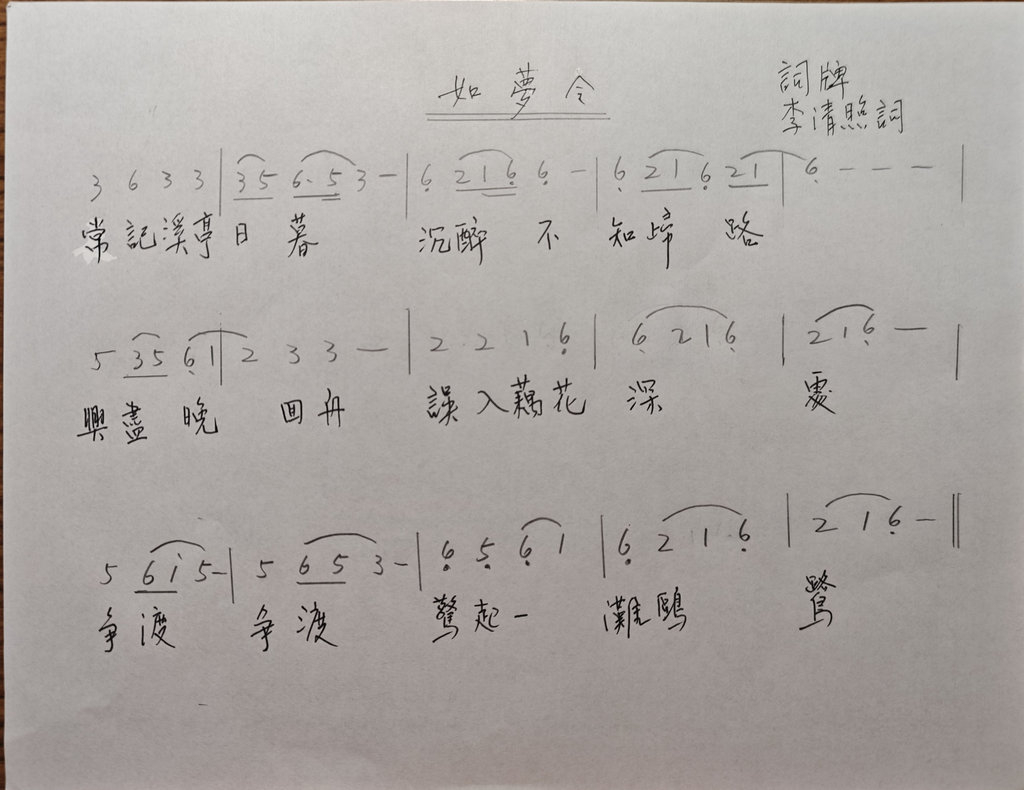 如夢令
詞牌
李清照詞
3 6 3 3 | 3 5 6. 5 3 – | 6 2 1 6 6 – | 6 2 1 6 2 1 | 6 – – – |
常記溪亭日暮 沉醉不知歸路
5 3 5 6 1 | 2 3 3 – | 2 2 1 6 | 6 2 1 6 | 2 1 6 – |
興盡晚回舟 誤入藕花深處
5 6 i 5 – | 5 6 5 3 – | 6 5 6 1 | 6 2 1 6 | 2 1 6 – ||
争渡 争渡 驚起一灘鷗鷺